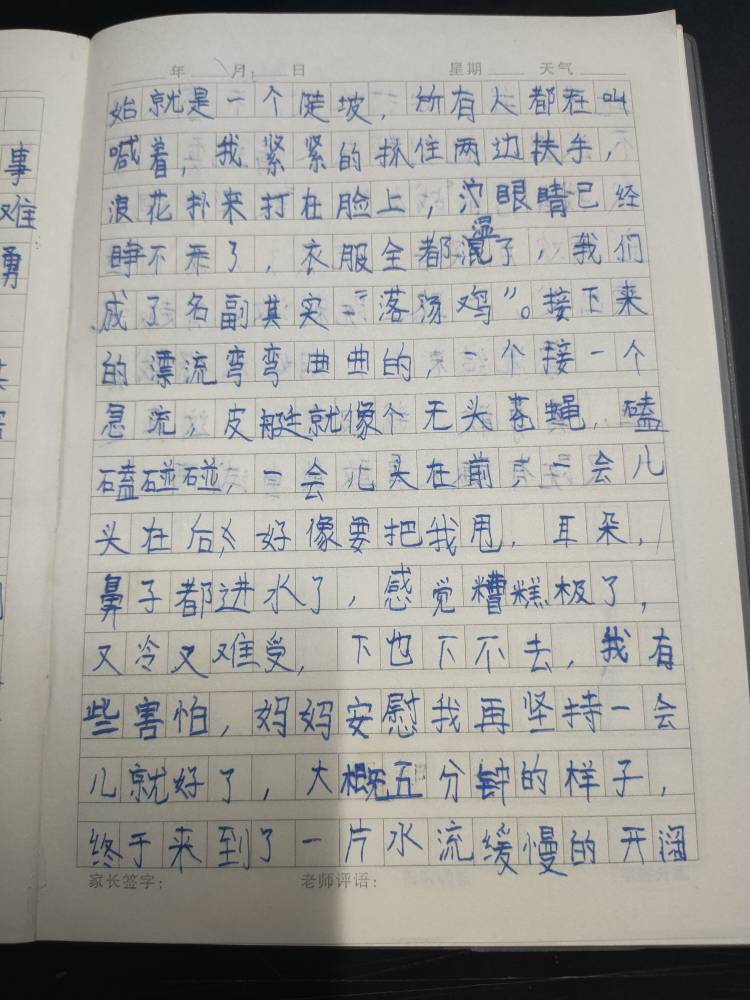 年 月 日 星期 天气
始就是一个陡坡，所有人都在叫
喊着，我紧紧的抓住两边扶手，
浪花扑来打在脸上，眼睛已经
睁不开了，衣服全都湿了，我们
成了名副其实“落汤鸡”。接下来
的漂流弯弯曲曲的，一个接一个
急流，皮艇就像个无头苍蝇，磕
磕碰碰，一会儿头在前，一会儿
头在后，好像要把我甩，耳朵，
鼻子都进水了，感觉糟糕极了，
又冷又难受，下也下不去，我有
些害怕，妈妈安慰我再坚持一会
儿就好了，大概五分钟的样子，
终于来到了一片水流缓慢的开阔
家长签字： 老师评语：
事
难
勇